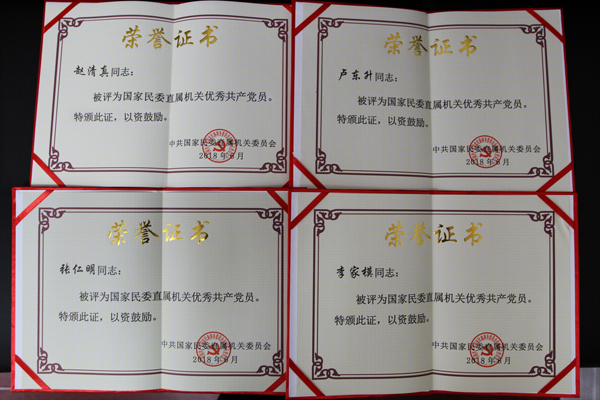 荣誉证书
赵清真同志：
被评为国家民委直属机关优秀共产党员。
特颁此证，以资鼓励。
中共国家民委直属机关委员会
2018年6月
荣誉证书
卢东升同志：
被评为国家民委直属机关优秀共产党员。
特颁此证，以资鼓励。
中共国家民委直属机关委员会
2018年6月
荣誉证书
张仁明同志：
被评为国家民委直属机关优秀共产党员。
特颁此证，以资鼓励。
中共国家民委直属机关委员会
2018年6月
荣誉证书
李家模同志：
被评为国家民委直属机关优秀共产党员。
特颁此证，以资鼓励。
中共国家民委直属机关委员会
2018年6月